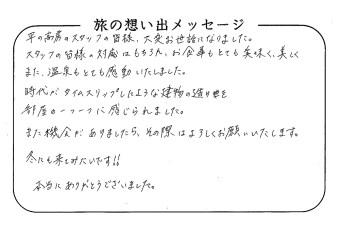 旅の想い出メッセージ
平の高房のスタッフの皆様、大変お世話になりました。
スタッフの皆様の対応はもちろん、お食事もとても美味しく、美しく
また、温泉もとても感動いたしました。
時代がタイムスリップしたような建物の造りやを
部屋の一つ一つに感じられました。
また機会がありましたら、その際はよろしくお願いいたします。
冬にも来てみたいです!!
本当にありがとうございました。